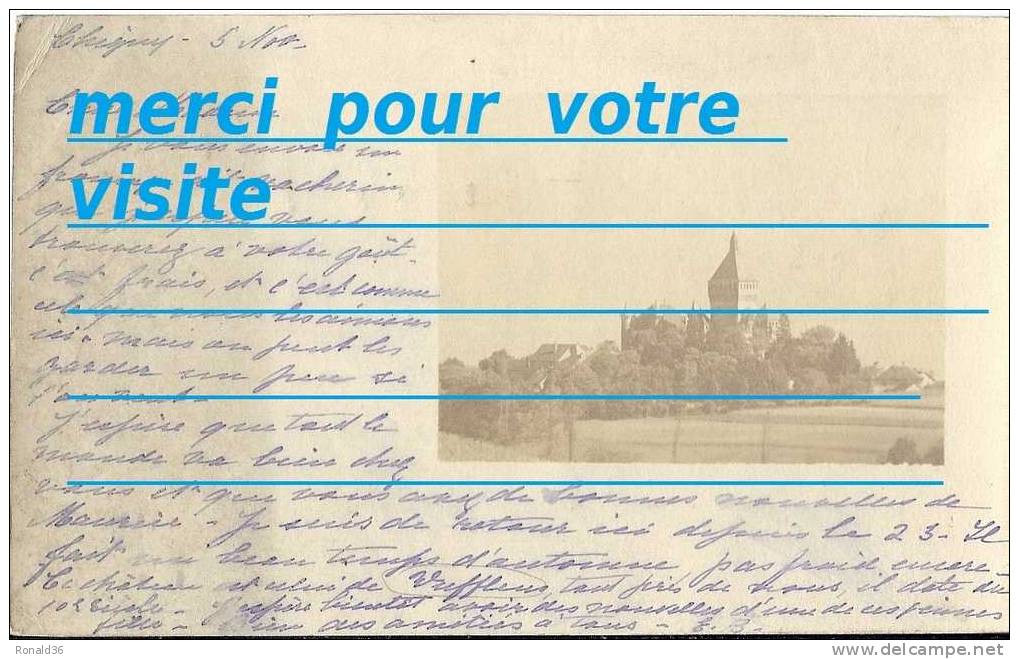 Chigny - 5 Nov.
merci pour votre
Je vous envoie un
visite
vacherin
vous
trouverez à votre goût -
c'est frais, et c'est comme
cela que nous les aimons
ici - mais on peut les
garder un peu si
l'on veut -
J'espère que tout le
monde va bien chez
vous et que vous avez de bonnes nouvelles de
Maurice - Je suis de retour ici depuis le 23 - Il
fait un beau temps d'automne pas froid encore
Ce château est celui de Vufflens, tout près de nous, il date du
10e siècle - J'espère bientôt avoir des nouvelles d'une de ces jeunes
filles - Bien des amitiés à tous - E. B.
Ronald36
www.delcampe.net